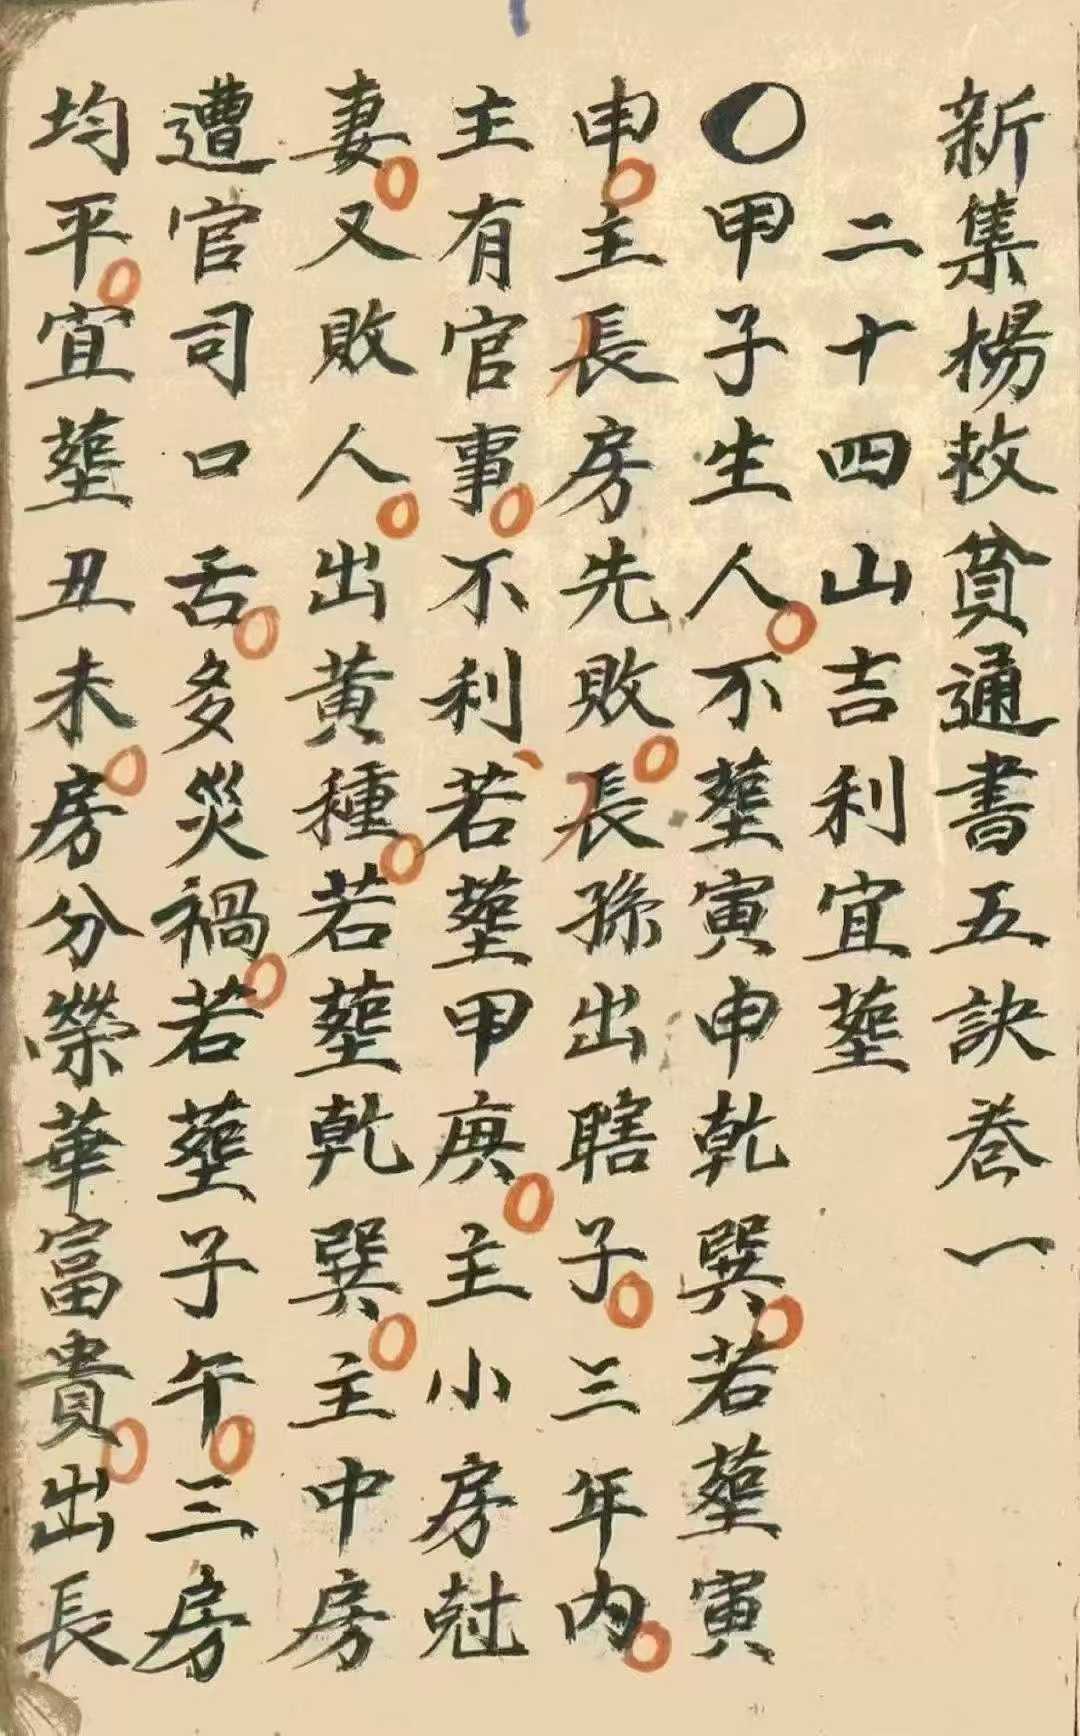 新集楊救貧通書五訣卷一
二十四山吉利宜塟
〇甲子生人不塟寅申乾巽若塟寅
申主長房先敗長孫出瞎子三年内
主有官事不利若塟甲庚主小房尅
妻又敗人出黄種若塟乾巽主中房
遭官司口舌多災禍若塟子午三房
均平宜塟丑未房分榮華富貴出長